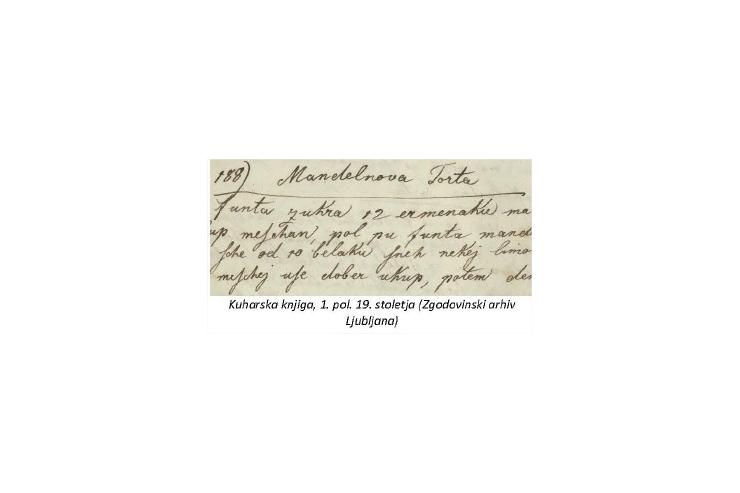 188) Mandelnova Torta
funta zukra 12 ermenaku ma
up meſhan, pol pu funta mand
ſhe od 10 belaku ſneh nekej limo
meſhej uſe dober ukup, potem de
Kuharska knjiga, 1. pol. 19. stoletja (Zgodovinski arhiv
Ljubljana)